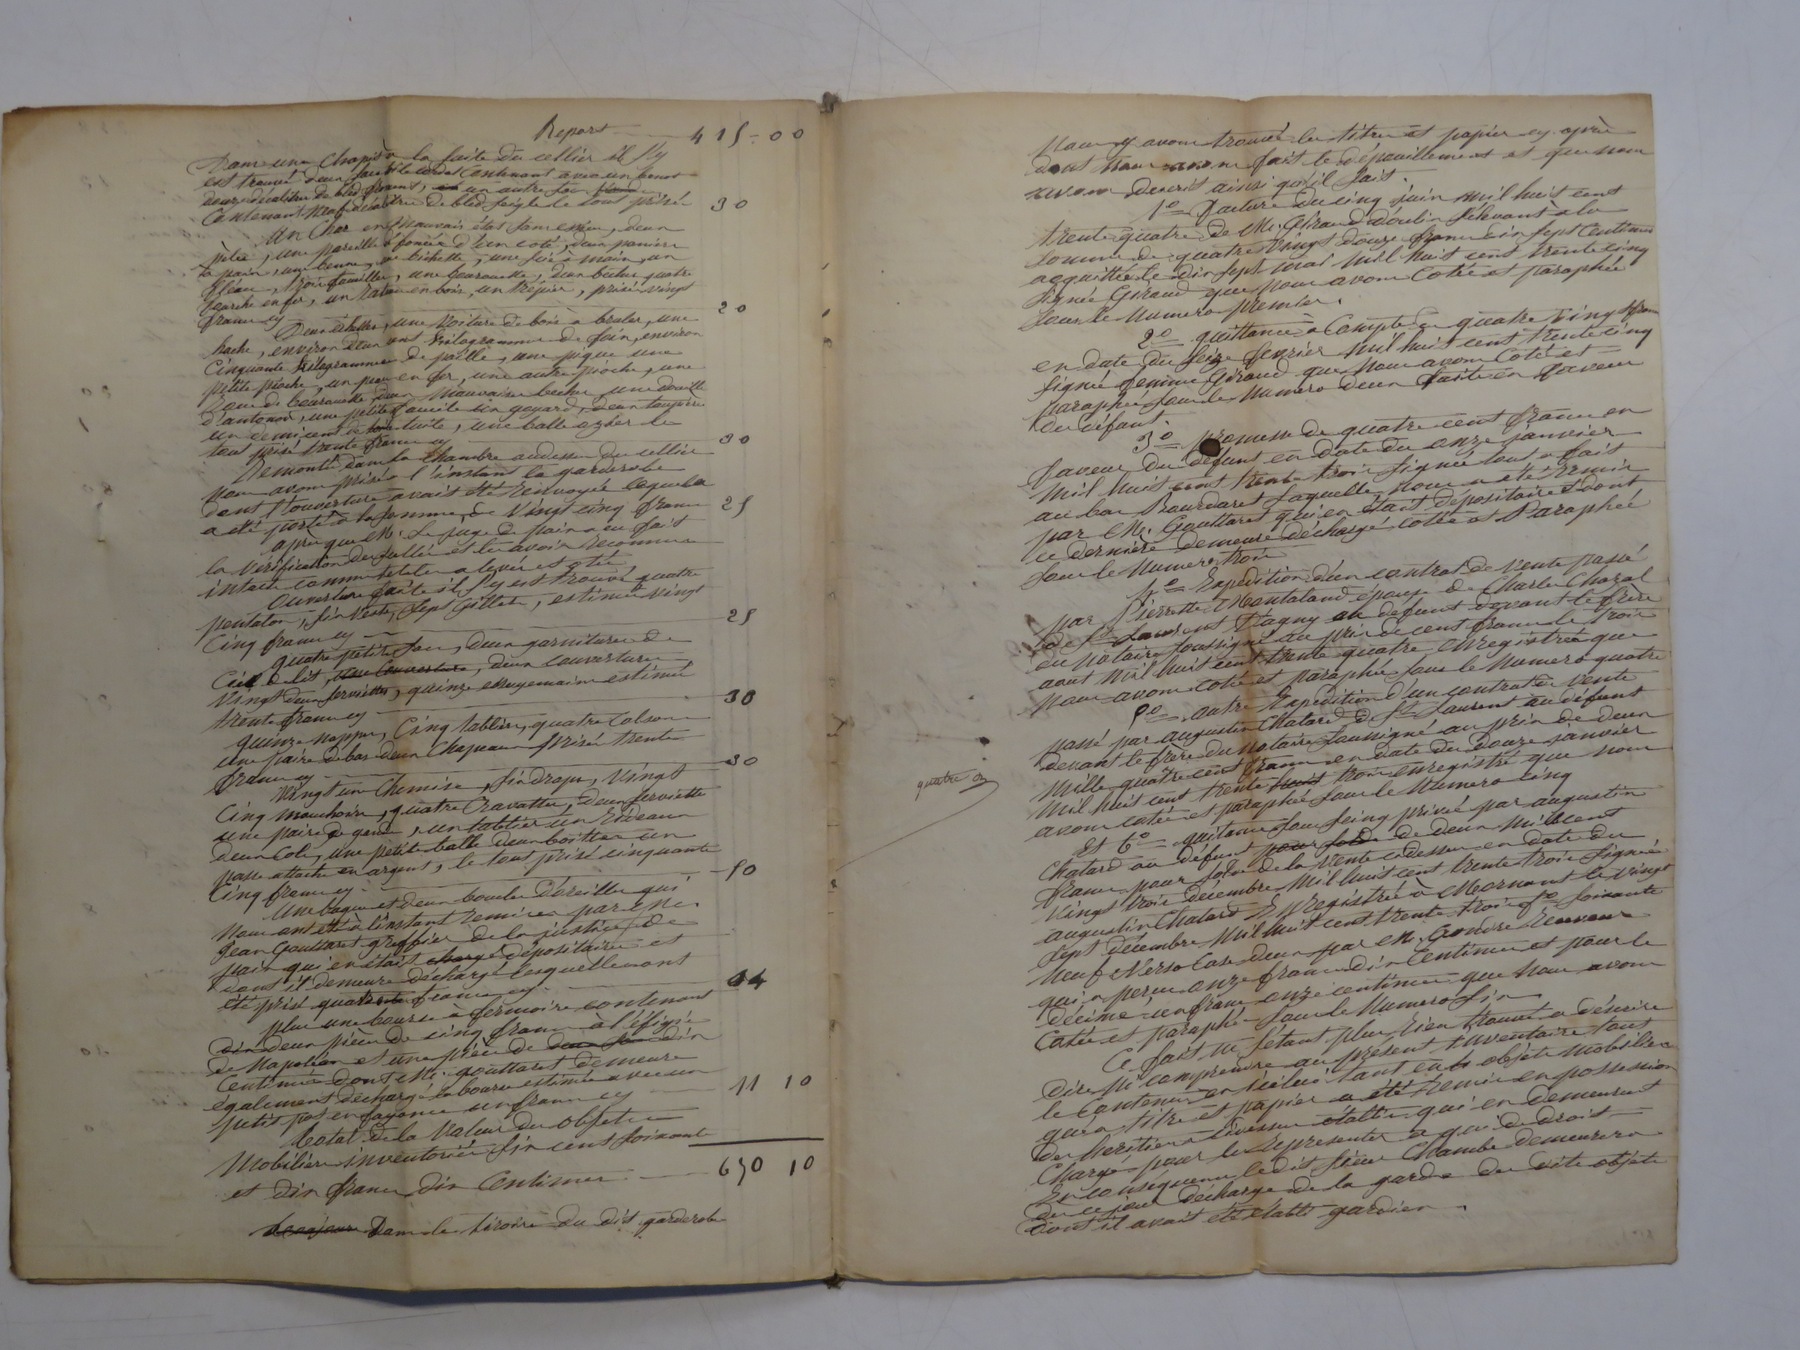 Report 415-00
Dans une Chapit à la suite du cellier il s'y
est trouvé deux contenant avec un benot
deux décalitres de bled froment, un autre sac
Contenant neuf décalitres de bled seigle le tout prisé 30
Un Char en mauvais état sans essieu, deux
pelles, une pareille à foncée d'un coté, deux paniers
à pain, une benne, une bichette, une scie à main, un
fléau, trois faucilles, une bourouette, deux bêches, quatre
fourche en fer, un rateau en bois, un trépier, prisé vingt
francs cy 20
Deux échelles, une voiture de bois à bruler, une
hache, environ deux cents kilogrammes de foin, environ
Cinquante kilogrammes de paille, une pique une
petite pioche, un pieu en fer, une autre pioche, une
roue de bourouette, deux mauvaises beches, une douille
d'antonoir, une petite faucille un goyard, deux toupières
un demi cent de tuile, une balle ozier le
tout prisé trente francs cy 30
Remonté dans la chambre audessus du cellier
nous avons prisé à l'instant la garderobe
dont l'ouverture avait été renvoyée laquelle
a été porté à la somme de vingt cinq francs 25
après que Mr. Le juge de paix a eu fait
la vérification des scellés et les avoir reconnus
intacts comme tels les a levés et oté
Ouverture faite il s'y est trouvé quatre
pentalon, six veste, sept gillets, estimés vingt
Cinq francs cy 25
quatre petits sacs, deux garnitures de
Ciel de lit, une couverture, deux couvertures
Vingt deux serviettes, quinze essuyemains estimés
trente francs cy 30
quinze nappes, Cinq tabliers, quatre Calsons
une paire de bas deux Chapeaux prisés trente
francs cy 30
Vingt un Chemise, six draps, Vingt
Cinq mouchoirs, quatre Cravattes, deux serviette
une paire de gand, un tablier un Rideaux
deux Cols, une petite balle deux boittes un
passe attache en argent, le tout prisé cinquante
Cinq francs cy 50
Une bague et deux boucles d'oreilles qui
nous ont été à l'instant remises par Me.
Jean Gouttaret greffier de la justice de
paix qui en était chargé dépositaire et
dont il demeure déchargé lesquelles ont
été prisé quatorze francs cy 14
plus une bourse à fermoire contenant
deux pièces de cinq francs à l'éfigie
de Napoléon et une pièce de deux sous dix
Centimes dont Mr. Gouttaret demeure
également déchargé la bourse estimée avec un
petit pot en fayance un franc cy 11 10
Total de la valeur des objets
Mobiliers inventoriés six cent soixante
et dix francs dix Centimes 670 10
Dans le tiroire du dit garderobe
Nous y avons trouvé les titres et papiers cy après
dont nous avons fait le dépouillement et que nous
avons décrit ainsi qu'il suit.
1o Facture du cinq juin mil huit cent
trente quatre de Mr. Giraud à la
somme de quatre vingt douze francs dix sept Centimes
acquittée le dix sept mai mil huit cent trente cinq
signée Giraud que nous avons Cotée et paraphée
sous le numero premier.
2o quittance à Compte de quatre vingt francs
en date du seize fevrier mil huit cent trente cinq
signée femme Giraud que nous avons Cotée et
paraphée sous le numero deux faite en faveur
du défunt.
3o promesse de quatre cent francs en
faveur du défunt en date du onze janvier
mil huit cent trente trois signée tout à fait
au bas Bourdaret laquelle nous a été remise
par Mr. Gouttaret qui en étant dépositaire et dont
ce dernier demeure déchargé Cotée et Paraphée
sous le numero trois
4o Expédition d'un contrat de vente passé
par Pierrette Montaland épouse de Charle Chazal
de St. Laurent d'agny au défunt devant le frère
du notaire soussigné au prix de cent francs le trois
aout mil huit cent trente quatre enregistrée que
nous avons cotée et paraphée sous le numero quatre
5o autre Expédition d'un contrat de vente
passé par augustin Chatard de St. Laurent au défunt
devant le frère du notaire soussigné au prix de deux
mille quatre cent francs en date du douze janvier
mil huit cent trente huit trois enregistré que nous
avons cotée et paraphée sous le numero cinq
quatre
Et 6o quittance sous seing privé par augustin
Chatard au défunt pour solde de deux mille cent
francs pour solde de la vente cidessus en date du
Vingt trois décembre mil huit cent trente trois signée
augustin Chatard Enregistré à Mornant le vingt
sept décembre mil huit cent trente trois fo soixante
neuf Verso Case deux par Mr. Receveur
qui a perçu onze francs dix Centimes et pour le
décime un franc onze centimes que nous avons
Cotée et paraphée sous le numero six
Ce fait ne s'étant plus rien trouvé à décrire
dire ni comprendre au présent inventaire tout
le Contenu en icelui tant en objets mobiliers
qu'en titres et papiers a été remis en possession
des heritiers établis qui en demeurent
Chargés pour les représenter à qui de droit
En conséquence le dit sieur Chambe demeurera
de ce jour déchargé de la garde des dits objets
dont il avait été établi gardien.